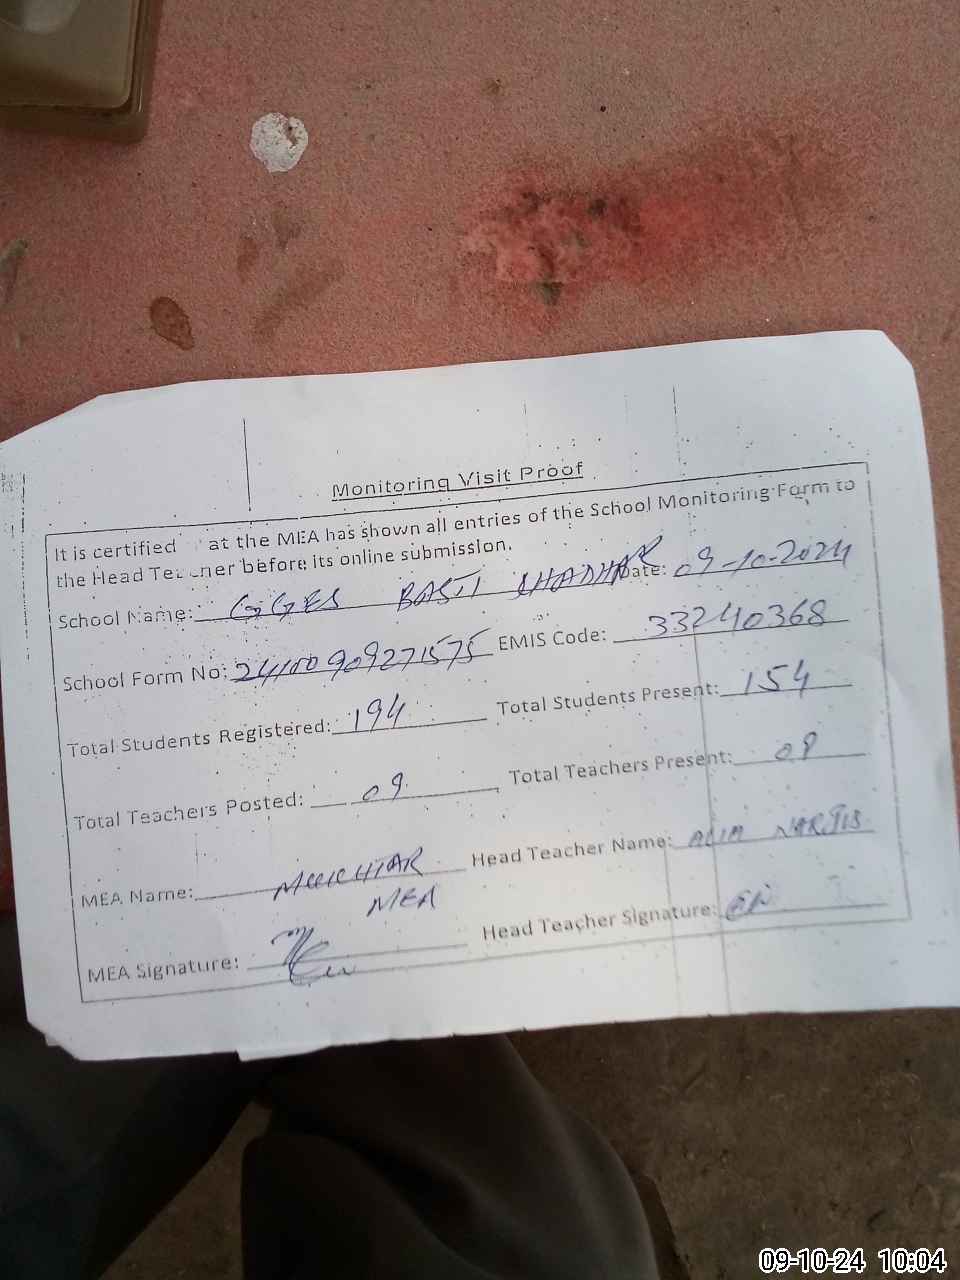 Monitoring Visit Proof
It is certified at the MEA has shown all entries of the School Monitoring Form to
the Head Teacher before its online submission.
School Name: GGES BASTI CHADHAR Date: 09-10-2024
School Form No: 24100909271575 EMIS Code: 33240368
Total Students Registered: 194 Total Students Present: 154
Total Teachers Posted: 09 Total Teachers Present:
MEA Name: MUKHTAR Head Teacher Name: ALIA NARJIS
MEA
MEA Signature: Head Teacher Signature:
09-10-24 10:04